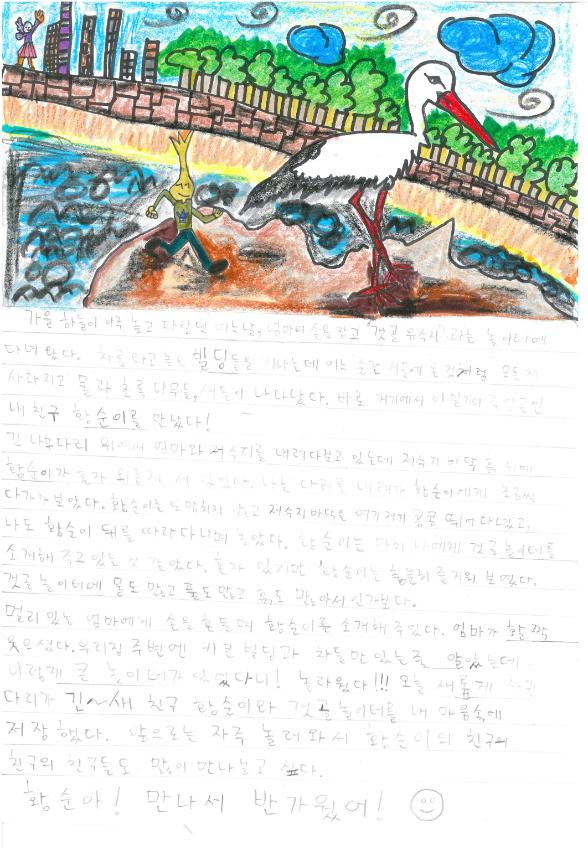 가을 하늘이 아주 높고 파랗던 어느날, 엄마의 손을 잡고 "갯골 유수지"라는 놀이터에
다녀 왔다. 차를 타고 높은 빌딩들을 지나는데 어느 순간 시골에 온 것처럼 모든 게
사라지고 물과 초록 나무들, 새들이 나타났다. 바로 거기에서 이 일기의 주인공인
내 친구 황순이를 만났다!
긴 나무다리 위에서 엄마와 저수지를 내려다보고 있는데 저수지 바닥 흙 위에
황순이가 혼자 외롭게 서 있었다. 나는 다리를 내려가 황순이에게 조금씩
다가가 보았다. 황순이는 도망치지 않고 저수지 바닥을 여기저기 콩콩 뛰어 다녔고,
나도 황순이 뒤를 따라다니며 놀았다. 황순이는 마치 나에게 갯골 놀이터를
소개해 주고 있는 것 같았다. 혼자 있지만 황순이는 충분히 즐거워 보였다.
갯골 놀이터에 물도 많고 풀도 많고 흙도 많아서 인가보다.
멀리 있는 엄마에게 손을 흔들며 황순이를 소개해 주었다. 엄마가 활짝
웃으셨다. 우리집 주변엔 키 큰 빌딩과 차들만 있는줄 알았는데
이렇게 큰 놀이터가 있었다니! 놀라웠다!!! 오늘 새롭게 사귄
다리가 긴~새 친구 황순이와 갯골 놀이터를 내 마음속에
저장했다. 앞으로는 자주 놀러와서 황순이의 친구의
친구의 친구들도 많이 만나보고 싶다.
황순아! 만나서 반가웠어!